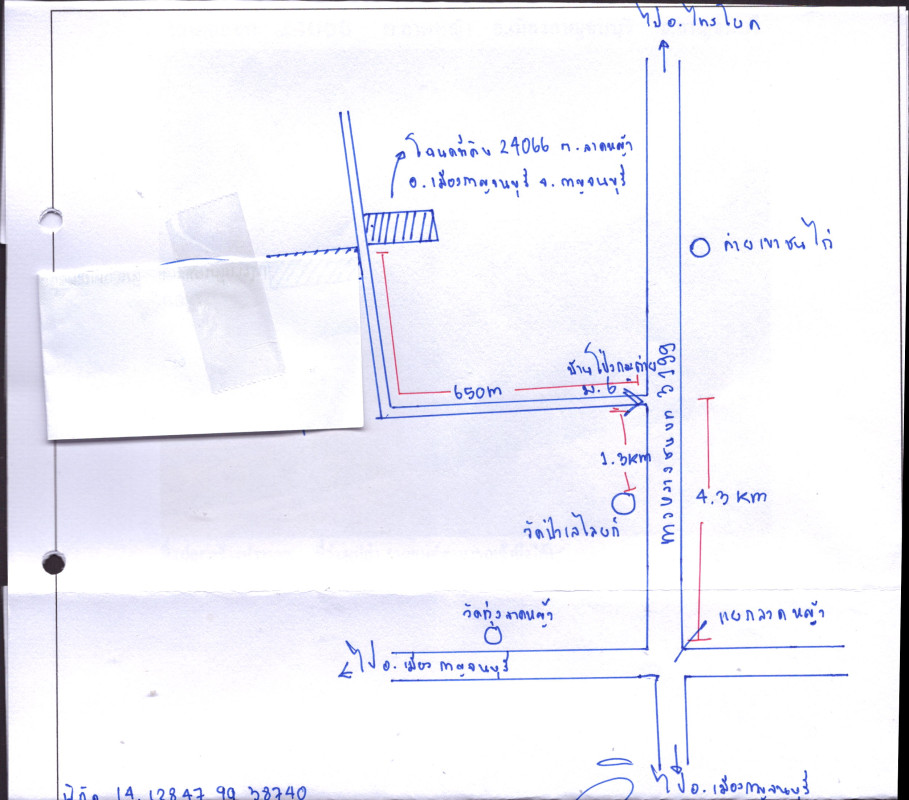 ไป อ. ไทรโยค
โฉนดที่ดิน 24066 ต. ลาดหญ้า
อ. เมืองกาญจนบุรี จ. กาญจนบุรี
ค่ายเขาชนไก่
บ้านโป่งกระต่าย
ม. 6
650m
ทางหลวงชนบท 3199
1.3km
4.3 km
วัดป่าเลไลยก์
วัดทุ่งลาดหญ้า
แยกลาดหญ้า
ไป อ. เมืองกาญจนบุรี
ไป อ. เมืองกาญจนบุรี
พิกัด 14.12847 99.38740